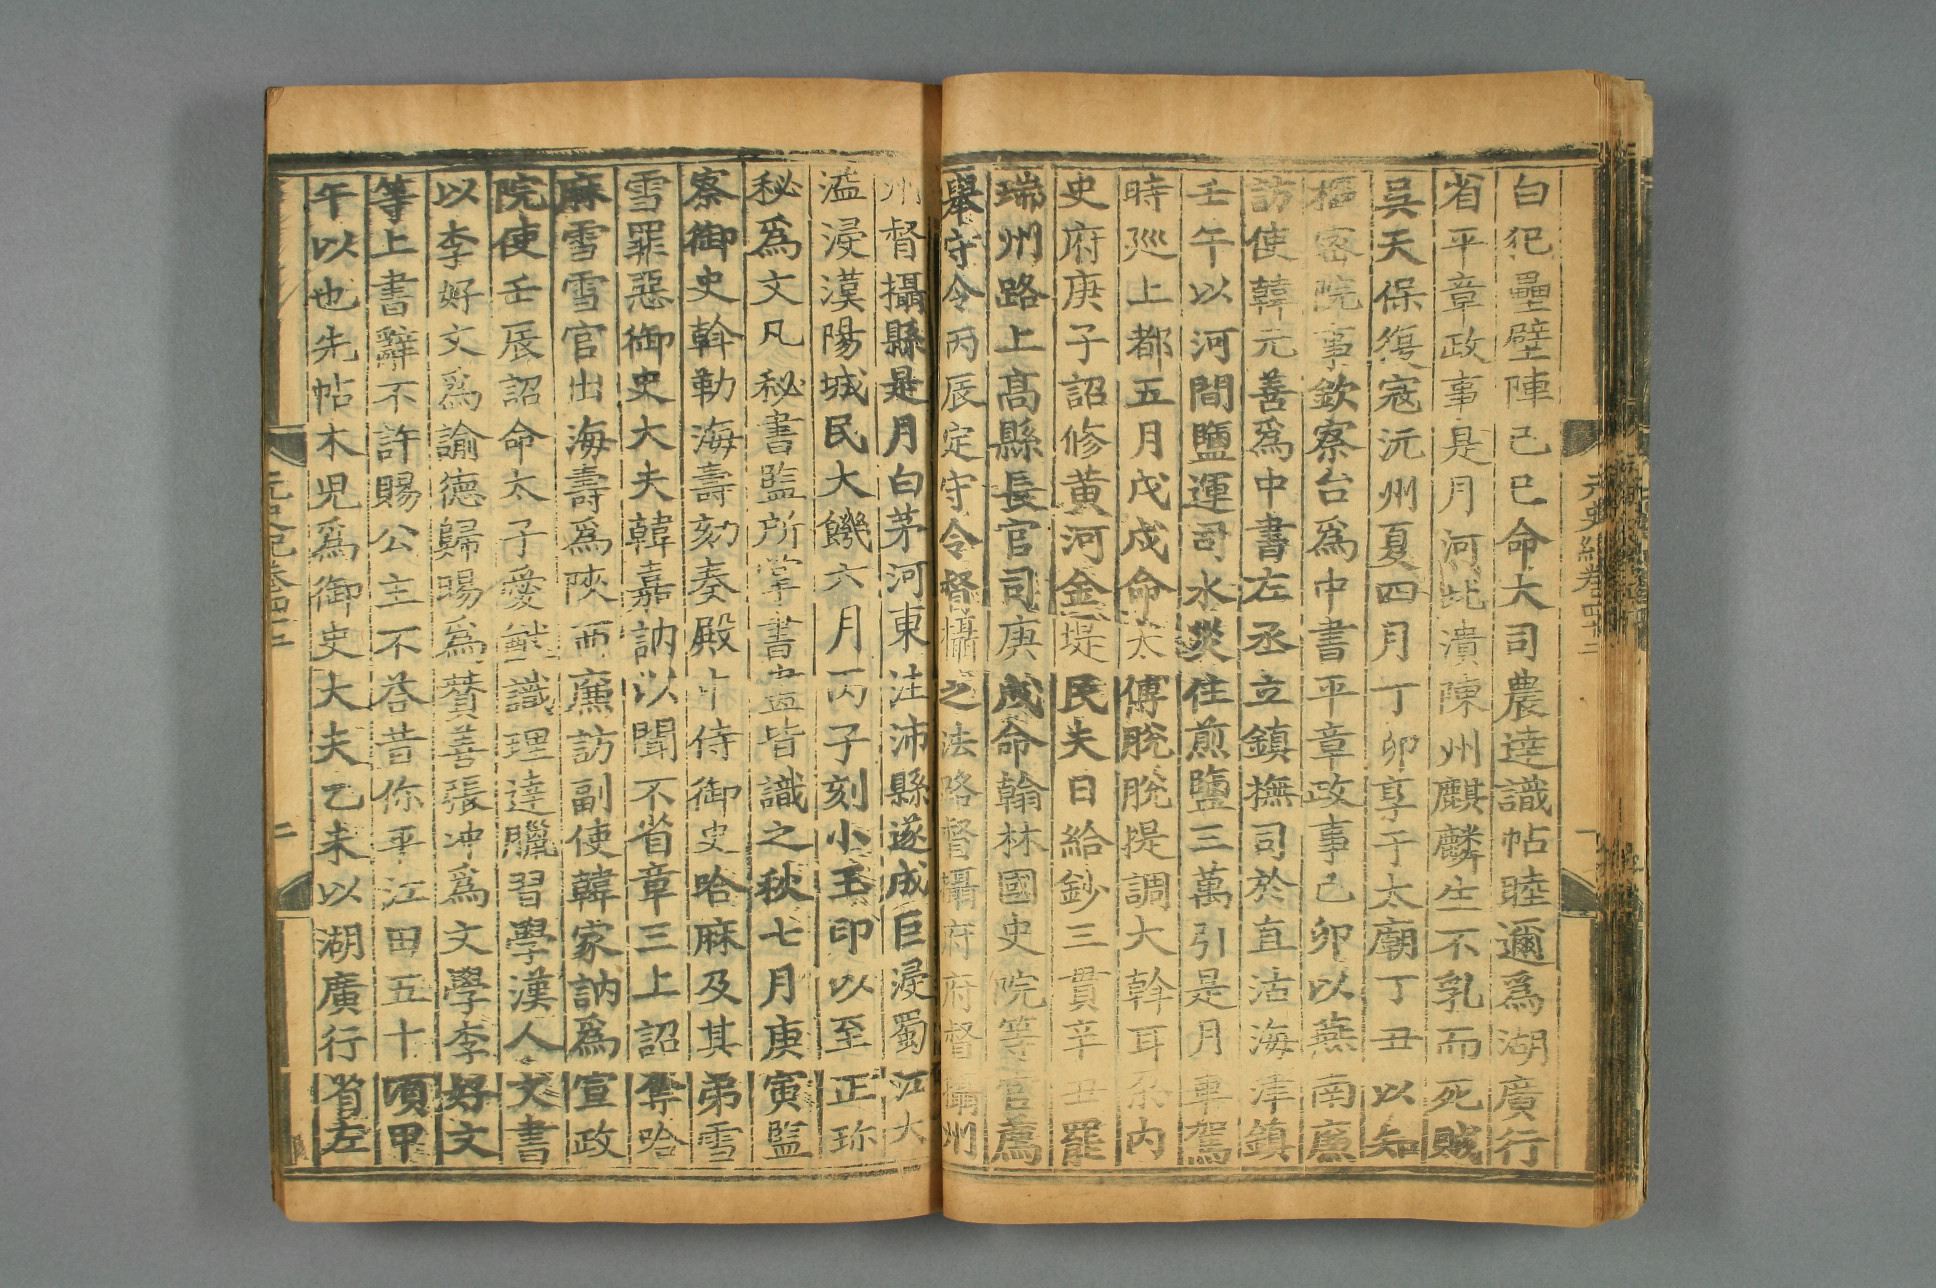 白犯壘壁陣己巳命大司農達識帖睦邇爲湖廣行
省平章政事是月河北潰陳州麒麟生不乳而死賊
吳天保復寇沅州夏四月丁卯享于太廟丁丑以知
樞密院事欽察台爲中書平章政事己卯以燕南廉
訪使韓元善爲中書左丞立鎮撫司於直沽海津鎮
壬午以河間鹽運司水災住煎鹽三萬引是月車駕
時巡上都五月戊戌命太傅脫脫提調大斡耳朶内
史府庚子詔修黄河金堤民夫日給鈔三貫辛丑罷
瑞州路上高縣長官司庚戌命翰林國史院等官薦
舉守令丙辰定守令督攝之法路督攝府府督攝州
州督攝縣是月白茅河東注沛縣遂成巨浸蜀江大
溢浸漢陽城民大饑六月丙子刻小玉印以至正珎
秘爲文凡秘書監所掌書盡皆識之秋七月庚寅監
察御史斡勒海壽劾奏殿中侍御史哈麻及其弟雪
雪罪惡御史大夫韓嘉訥以聞不省章三上詔奪哈
麻雪雪官出海壽爲陝西廉訪副使韓家訥爲宣政
院使壬辰詔命太子愛猷識理達臘習學漢人文書
以李好文爲諭德歸暘爲贊善張冲爲文學李好文
等上書辭不許賜公主不荅昔你平江田五十頃甲
午以也先帖木児爲御史大夫乙未以湖廣行省左
元史紀卷四十二
元史紀卷四十二
二